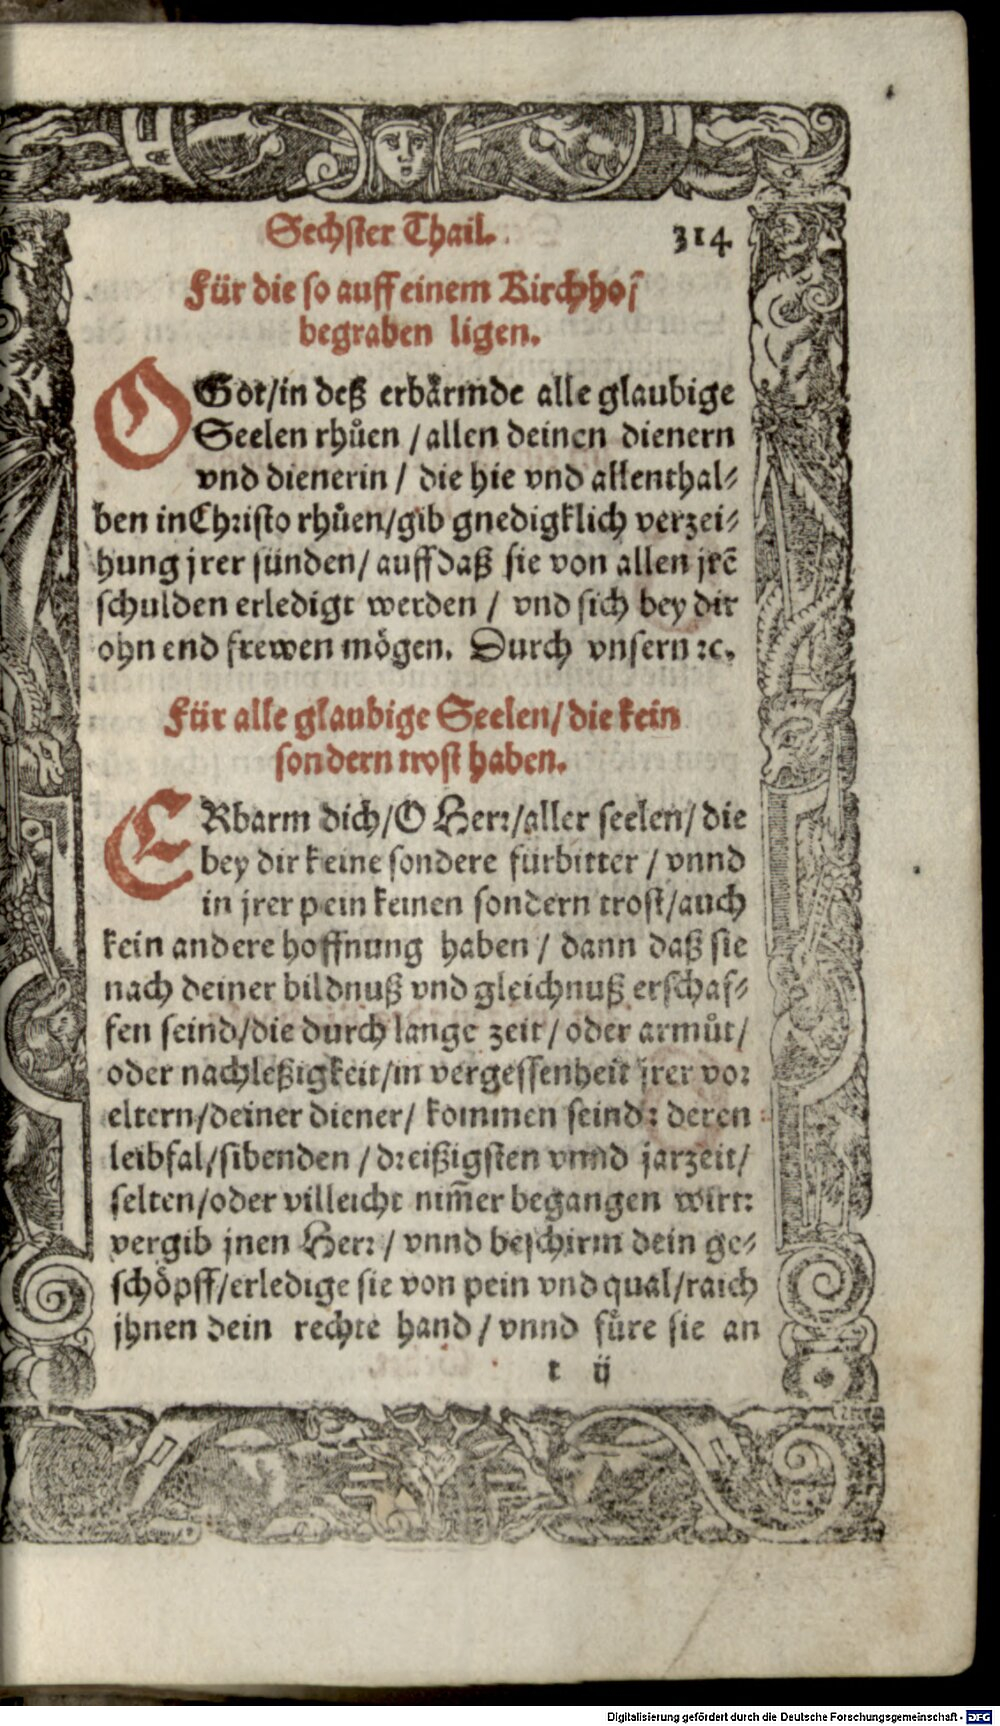 Sechster Thail. 314
Für die so auff einem Kirchhof
begraben ligen.
O Got/in deß erbärmde alle glaubige
Seelen rhůen / allen deinen dienern
vnd dienerin / die hie vnd allenthal⸗
ben in Christo rhůen/gib gnedigklich verzei⸗
hung jrer sünden/ auff daß sie von allen jrẽ
schulden erledigt werden / vnd sich bey dir
ohn end frewen mögen. Durch vnsern ⁊c.
Für alle glaubige Seelen/ die kein
sondern trost haben.
ERbarm dich/O Herr/aller seelen/ die
bey dir keine sondere fürbitter / vnnd
in jrer pein keinen sondern trost/auch
kein andere hoffnung haben / dann daß sie
nach deiner bildnuß vnd gleichnuß erschaf⸗
fen seind/die durch lange zeit/ oder armůt/
oder nachleßigkeit/in vergessenheit jrer vor
eltern/deiner diener/ kommen seind: deren
leibfal/sibenden / dreißigsten vnnd jarzeit/
selten/oder villeicht nim̃er begangen wirt:
vergib jnen Herr / vnnd beschirm dein ge⸗
schöpff/erledige sie von pein vnd qual/raich
jhnen dein rechte hand / vnnd fůre sie an
t ij
Digitalisierung gefördert durch die Deutsche Forschungsgemeinschaft - DFG